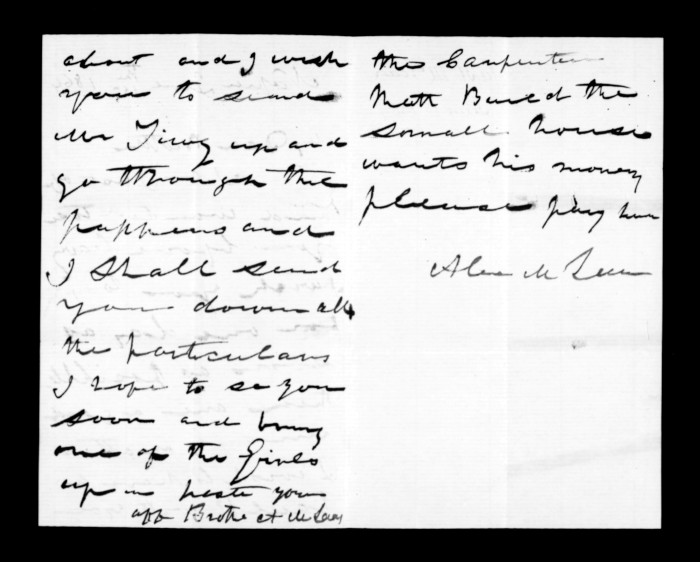 about and I wish
you to send
Mr up and
go through the
pappers and
I Shall send
you down all
the particulars
I hope to se you
soon and bring
one of the Girls
up in haste yours
aff Brothe A McLean
the Carpenter
thatt Bueld the
somall house
wants his money
please pay him
Alex McLean